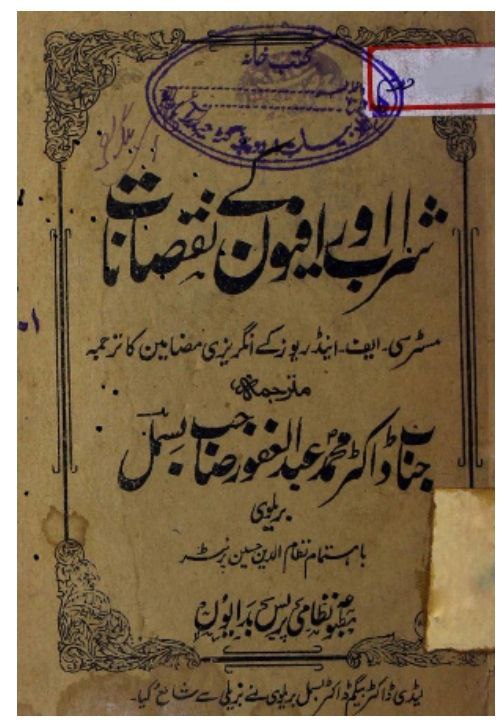 کتب خانہ
شراب اور افیون کے نقصانات
مسٹر سی۔ ایف۔ اینڈریوز کے انگریزی مضامین کا ترجمہ
مترجمہ
جناب ڈاکٹر محمد عبدالغفور صاحب بسمل
بریلوی
باہتمام نظام الدین حسین پرنٹر
مطبوعہ نظامی پریس بدایوں
لیڈی ڈاکٹر بیگم ڈاکٹر بسمل بریلوی نے بریلی سے شائع کیا۔